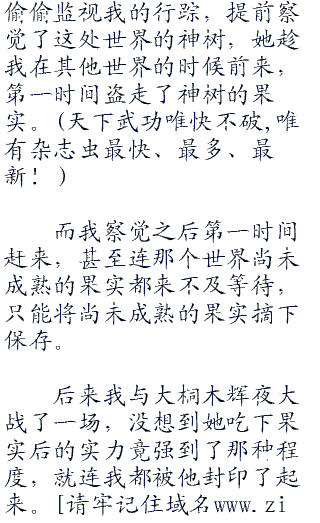 偷偷监视我的行踪，提前察
觉了这处世界的神树，她趁
我在其他世界的时候前来，
第一时间盗走了神树的果
实。(天下武功唯快不破,唯
有杂志虫最快、最多、最
新！)
而我察觉之后第一时间
赶来，甚至连那个世界尚未
成熟的果实都来不及等待，
只能将尚未成熟的果实摘下
保存。
后来我与大桐木辉夜大
战了一场，没想到她吃下果
实后的实力竟强到了那种程
度，就连我都被他封印了起
来。[请牢记住域名www.zi